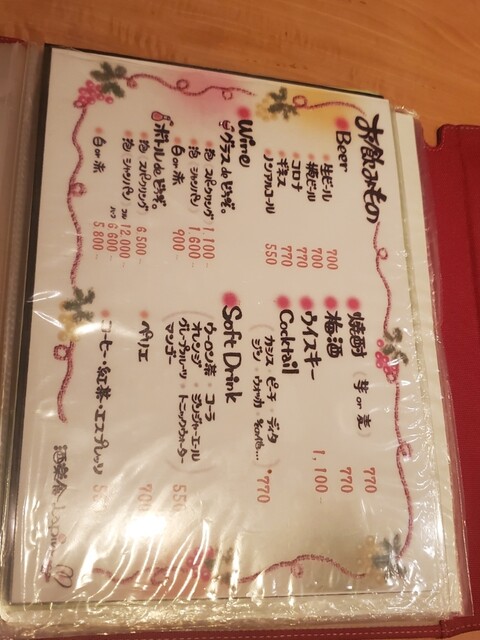 お飲みもの
Beer
・生ビール 700
・瓶ビール 700
・コロナ 770
・ギネス 770
・ノンアルコール 550
Wine
グラス de どうぞ。
・泡 スパークリング 1,100-
・泡 シャンパン 1,600-
・白 or 赤 900
ボトル de どうぞ。
・泡 スパークリング 6,500-
・泡 シャンパン フル 12,000-
ハーフ 6,600-
・白 or 赤 5,800-
焼酎 (芋 or 麦) 770
梅酒 770
ウイスキー 1,100-
Cocktail
(カシス・ピーチ・ディタ
ジン・ウォッカ・その他…) ・770
Soft Drink
ウーロン茶・コーラ
オレンジ・ジンジャーエール
グレープフルーツ・トニックウォーター
マンゴー 550
・ペリエ 700
・コーヒー・紅茶・エスプレッソ